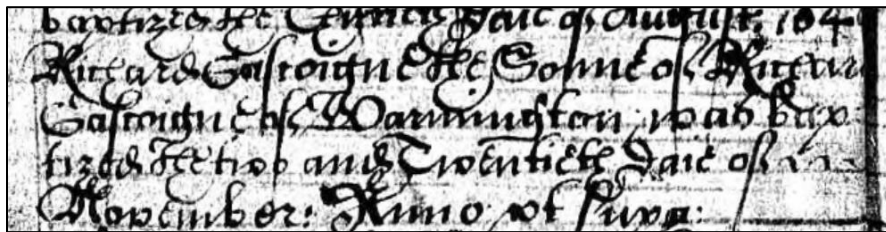 baptized the daie of August, 164
Richard Gascoigne the Sonne of Richard
Gascoigne of Warmington was bap
tized the two and Twentieth daie of
November: Anno vt supra: